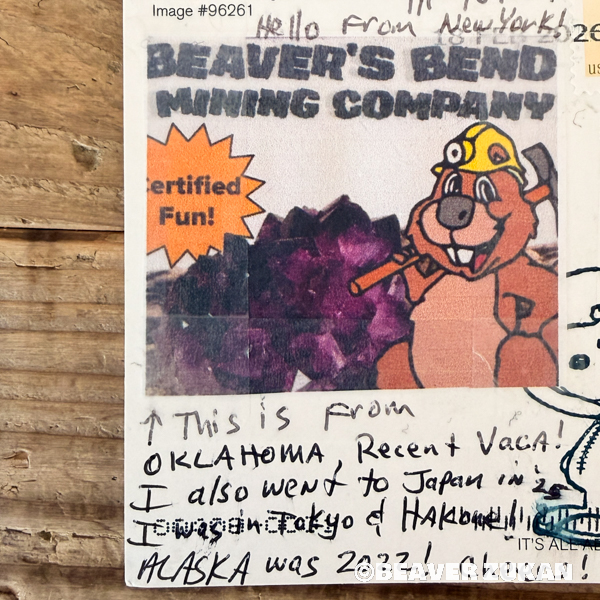 Image #96261
Hello From New York!
BEAVER'S BEND
MINING COMPANY
ertified
Fun!
↑ This is From
OKLAHOMA, Recent VACA!
I also went to Japan in '25
I was in Tokyo & HAKONE!!
IT'S ALL A
ALASKA was 2022!
©BEAVER ZUKAN